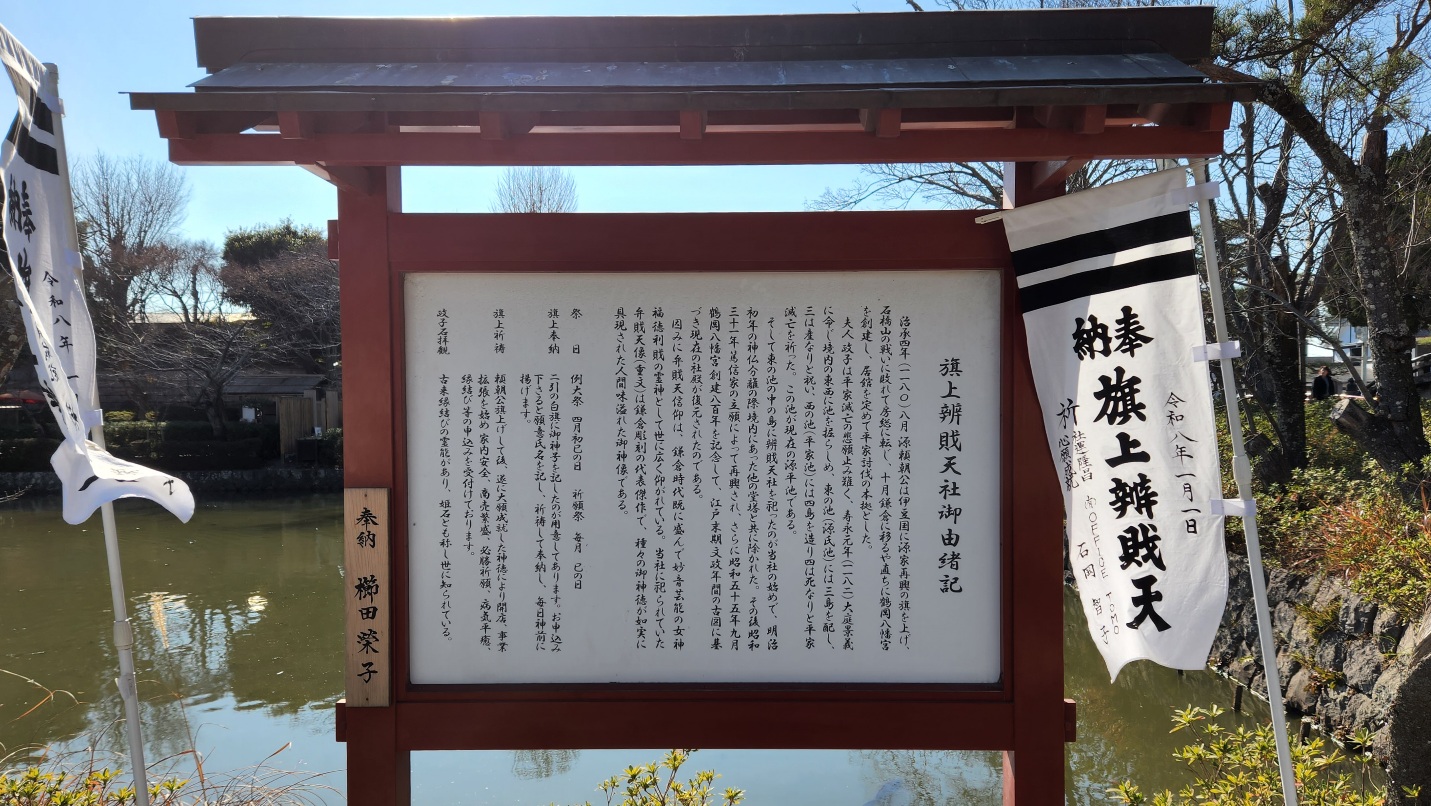 旗上辨戝天社御由緒記
治承四年(一一八〇)八月 源頼朝公は伊豆国に源家再興の旗を上げ、
石橋山の戦いに敗れて房総に転し、十月鎌倉に移るや直ちに鶴岡八幡宮
を創建し、居館を定めて平家討伐の本拠とした。
夫人政子は平家滅亡の悲願止み難く、寿永元年(一一八二)大庭景義
に命じ境内の東西に池を掘らしめ、東の池(源氏池)には三島を配し、
三は産なりと祝い、西の池(平家池)には四島を造り四は死なりと平家
滅亡を祈った。この池が現在の源平池である。
そして東の池の中の島に辨戝天社を祀ったのが当社の始めで、明治
初年の神仏分離の際、境内にあった他の堂塔と共に除かれた。その後昭和
三十一年篤信家の立願によって再興され、さらに昭和五十五年九月
鶴岡八幡宮創建八百年を記念して、江戸末期文政年間の古図に基
づき現在の社殿が復元されたのである。
因みに弁戝天信仰は、鎌倉時代既に盛んで妙音芸能の女神
福徳利戝の霊神として世に広く仰がれている。当社に祀られていた
弁戝天像(重文)は鎌倉彫刻の代表傑作で、種々の御神徳が如実に
具現された人間味溢れた御神像である。
祭 日 例大祭 四月初巳の日 祈願祭 毎月 巳の日
旗上奉納 二引の白旗に御神号を記したのが用意してあります。お申込み
下さると願意氏名を記し、祈祷して奉納し、毎日神前に
揚げます。
旗上祈祷 頼朝公旗上げして後、遂に大願成就した神徳により開店、事業
拡張を始め家内安全、商売繁盛、必勝祈願、病気平癒、
縁結び等の申込みを受付けております。
政子石拝観 古来縁結びの霊能があり、姐石とも称し世に知られている。
奉納 櫛田栄子
令和八年一月一日
奉納 旗上辨戝天
祈 社運隆昌
心願成就
OFFICE TOMO
石岡 智子
奉納
令和八年一